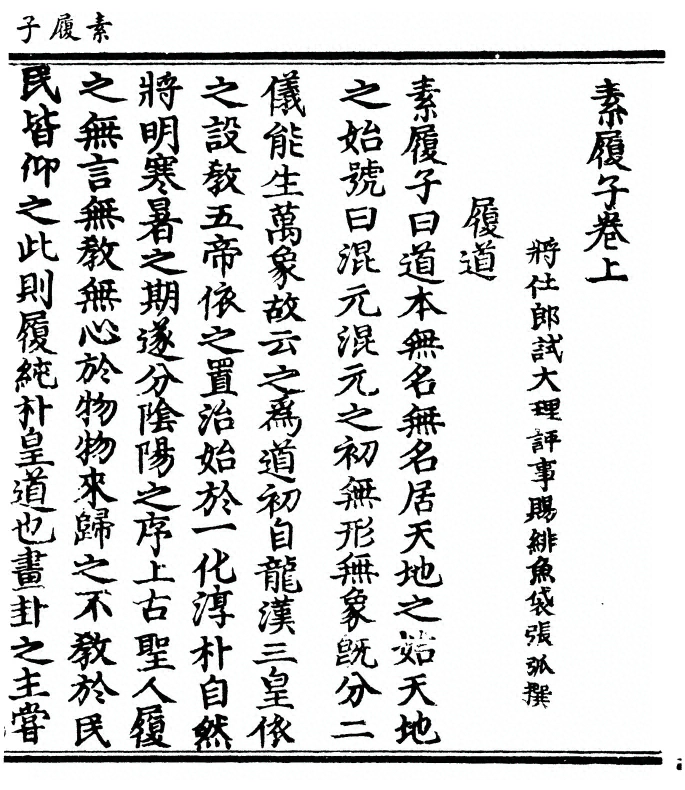 素履子
素履子卷上
將仕郎試大理評事賜緋魚袋張弧撰
履道
素履子曰道本無名無名居天地之始天地
之始號曰混元混元之初無形無象旣分二
儀能生萬象故云之爲道初自龍漢三皇依
之設敎五帝依之置治始於一化淳朴自然
將明寒暑之期遂分陰陽之序上古聖人履
之無言無敎無心於物物來歸之不敎於民
民皆仰之此則履純朴皇道也畫卦之主嘗